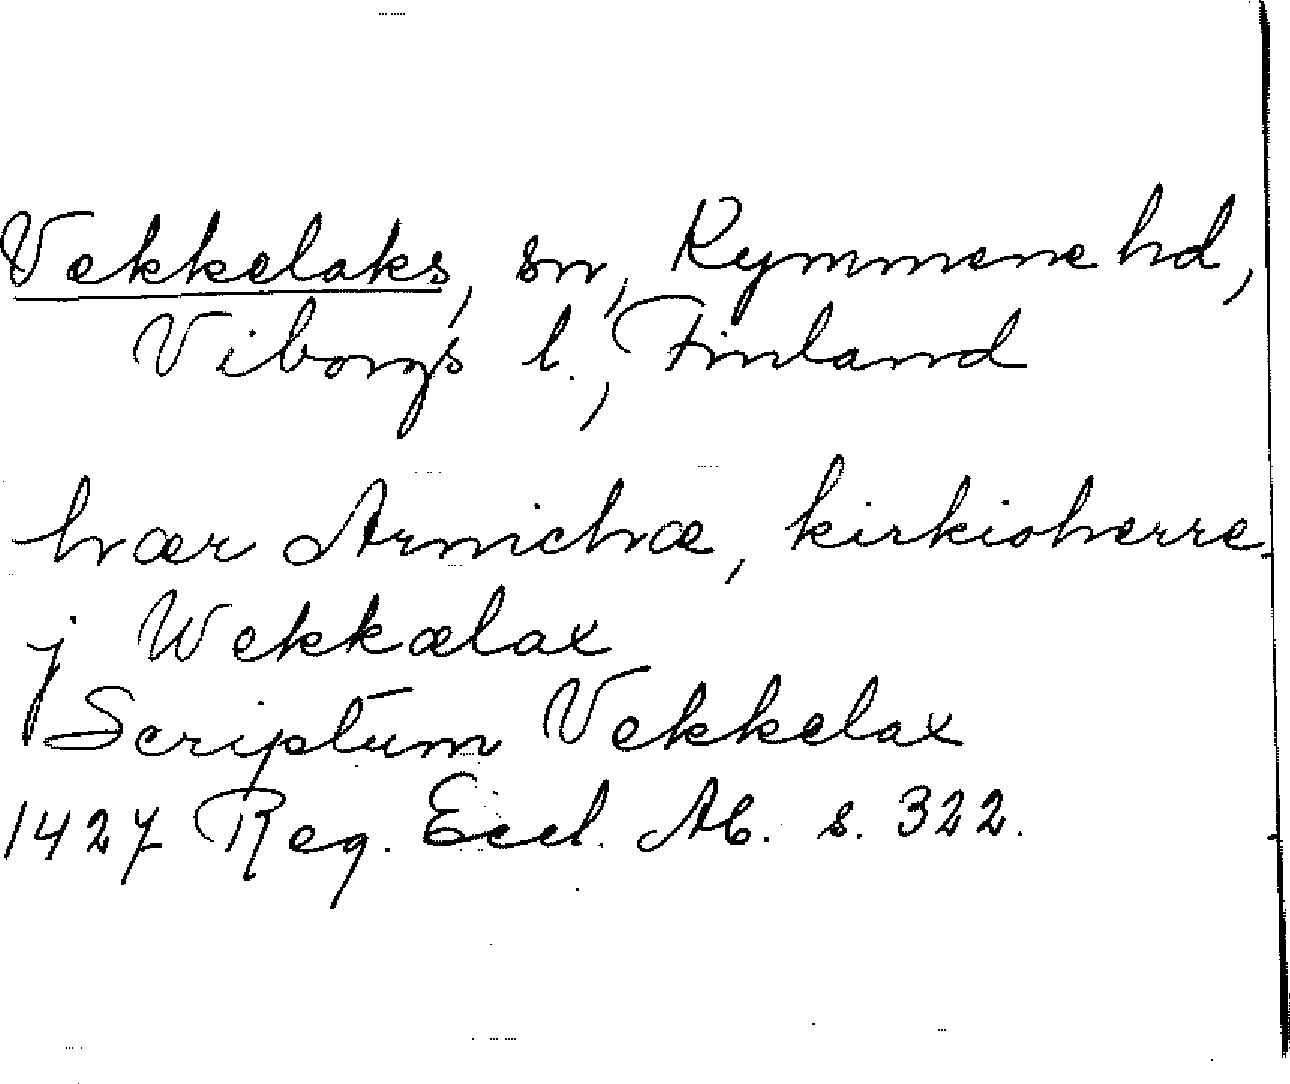 Vekkelaks, sn, Kymmene hd,
Viborgs l., Finland
hær Arnichæ, kirkioherre
j Wekkælax
Scriptum Vekkelax
1427 Reg. Eccl. Ab. s. 322.